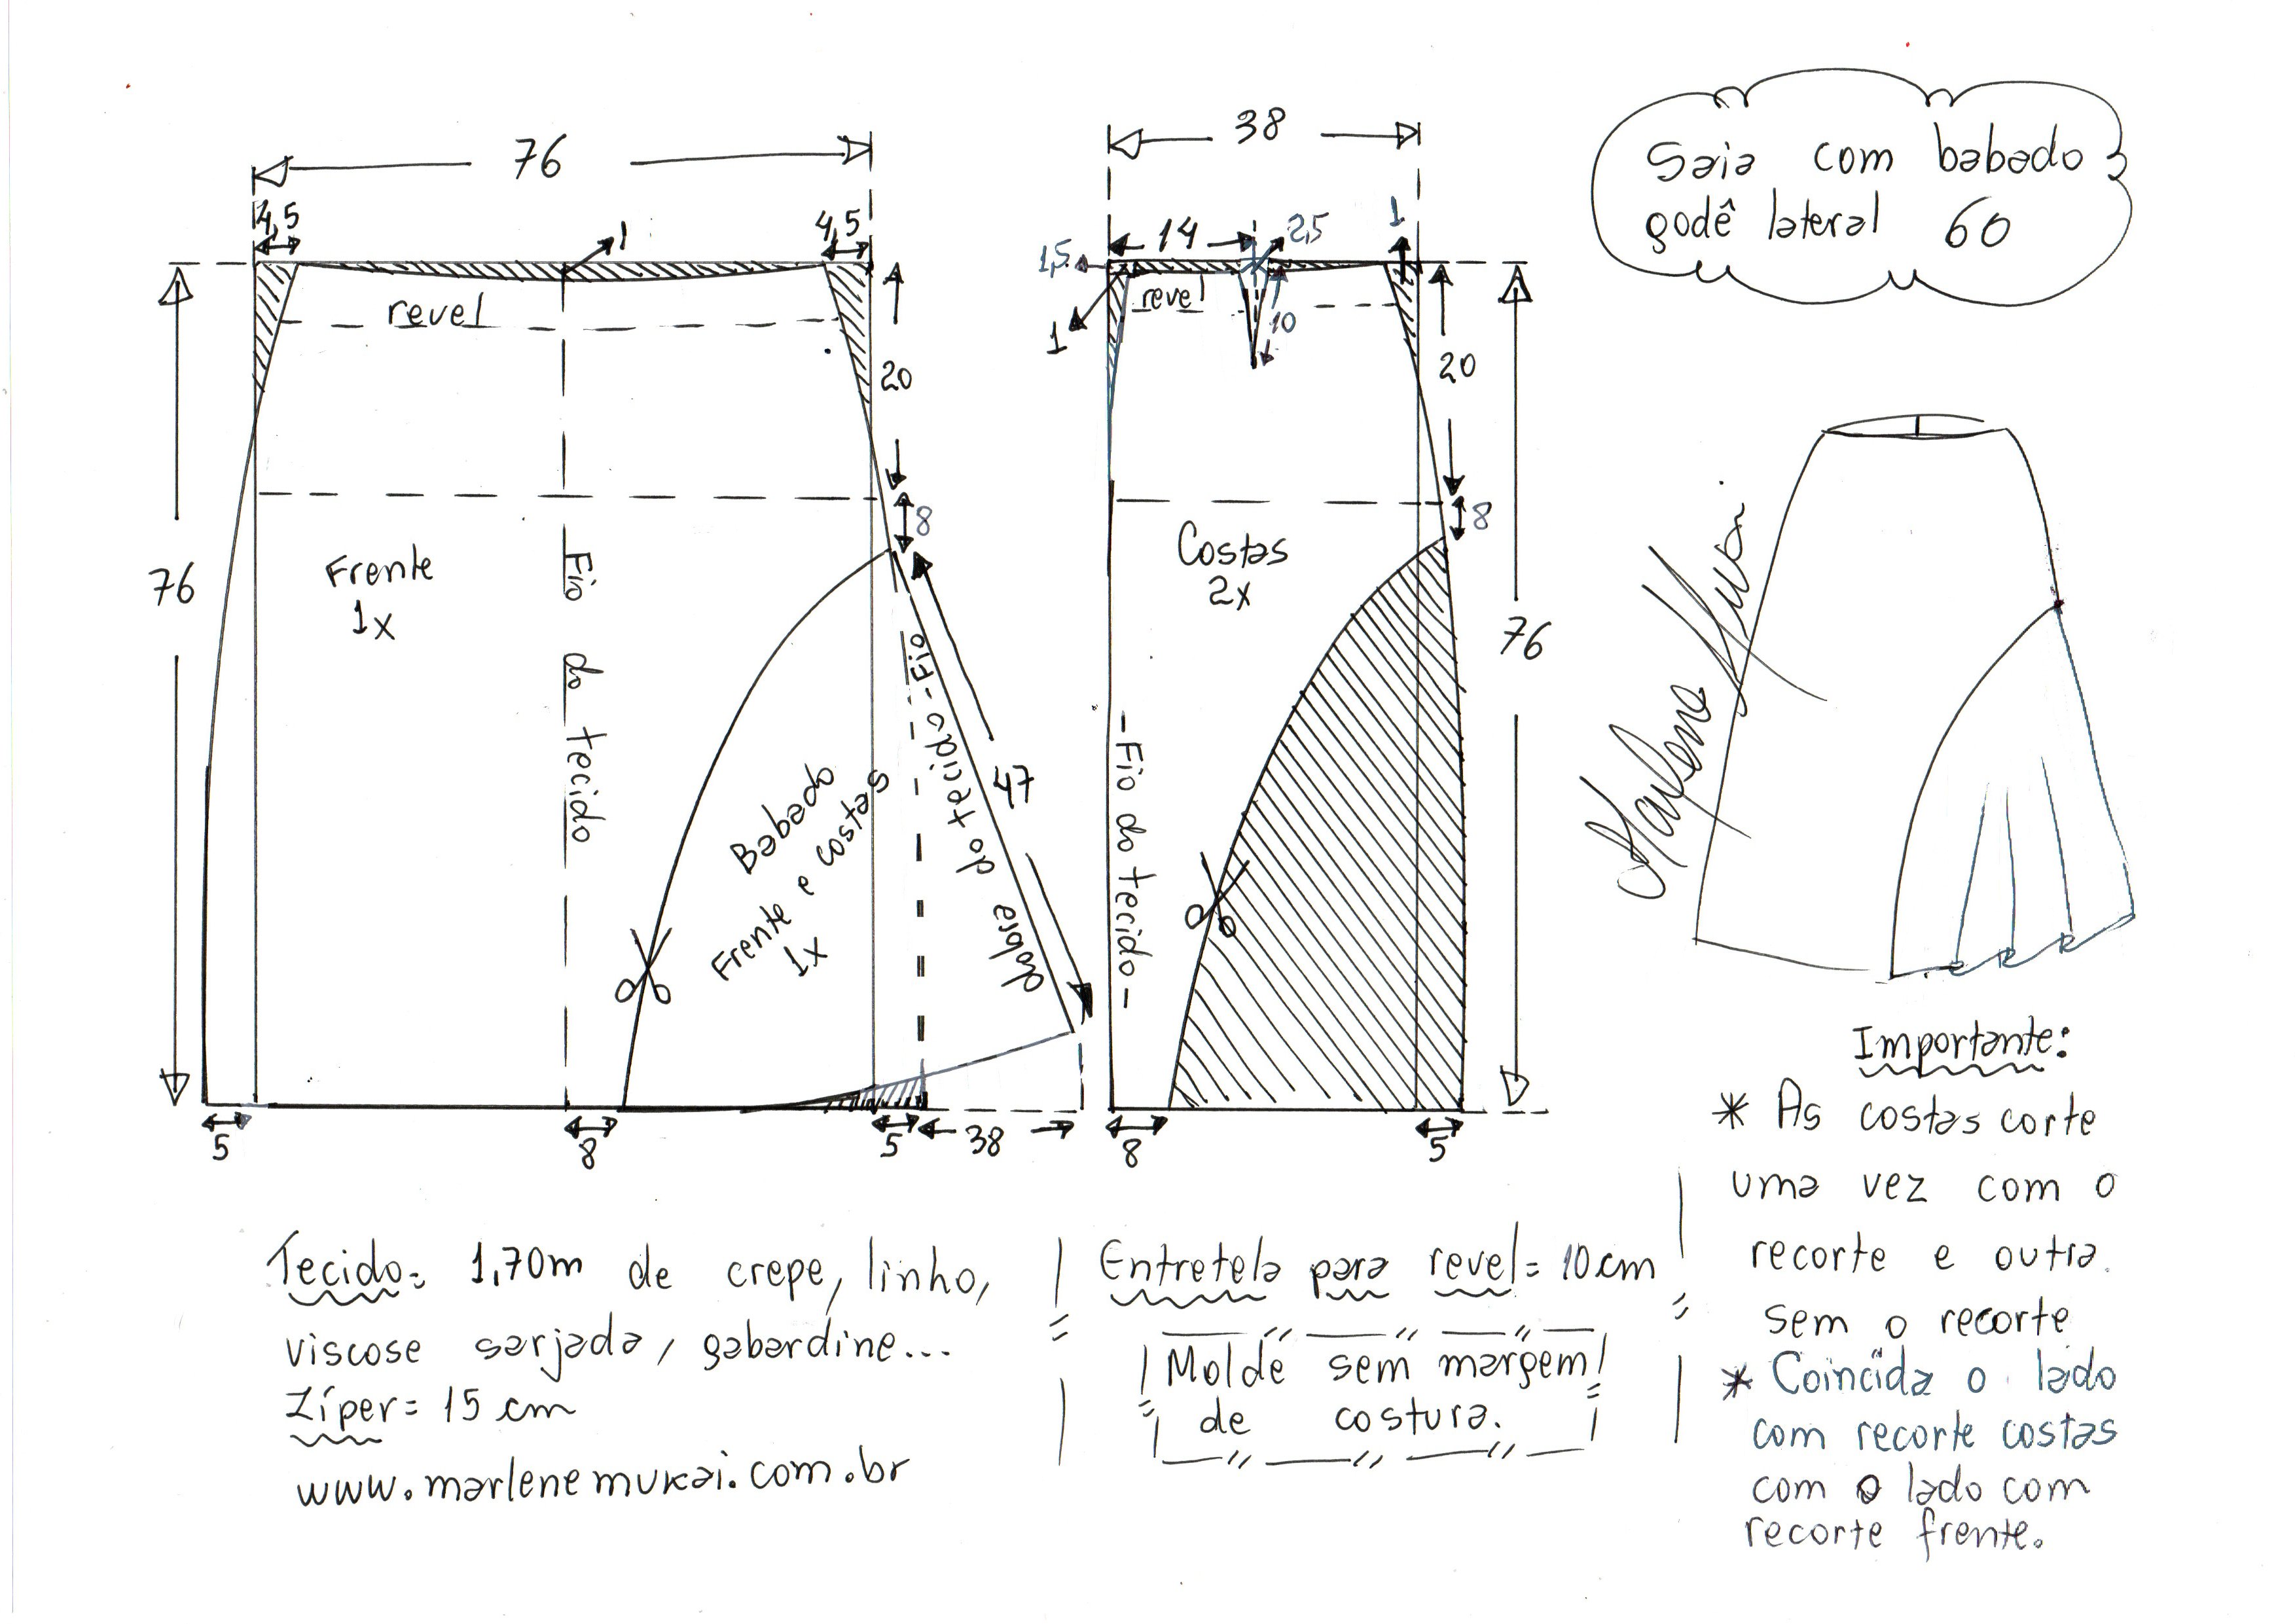 76
4,5
4,5
1
revel
20
8
76
Frente
1x
Fio do tecido
Babado
Frente e costas
1x
Fio do tecido
dobra
47
5
8
5
38
38
14
2,5
1
1,5
revel
1
10
20
8
Costas
2x
Fio do tecido
76
8
5
Saia com babado
godê lateral 60
Marlene Mukai
Tecido= 1,70m de crepe, linho,
viscose sarjada, gabardine...
Zíper= 15 cm
www.marlenemukai.com.br
Entretela para revel= 10cm
Molde sem margem
de costura.
Importante:
* As costas corte
uma vez com o
recorte e outra
sem o recorte
* Coincida o lado
com recorte costas
com o lado com
recorte frente.